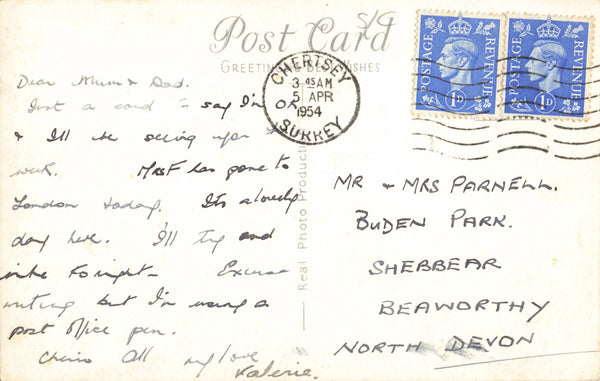 S/9
Post Card
GREETINGS & BEST WISHES
CHERTSEY
3.45AM
5 APR
1954
SURREY
POSTAGE REVENUE
1D
POSTAGE REVENUE
1D
Dear Mum & Dad.
Just a card to say I'm OK
& I'll be seeing you
week. Mrs F has gone to
London today. It's a lovely
day here. I'll try and
write tonight - Excuse
writing but I'm using a
post office pen.
Cheerio All my love
Valerie.
Real Photo Production
MR & MRS PARNELL.
BUDEN PARK.
SHEBBEAR
BEAWORTHY
NORTH DEVON